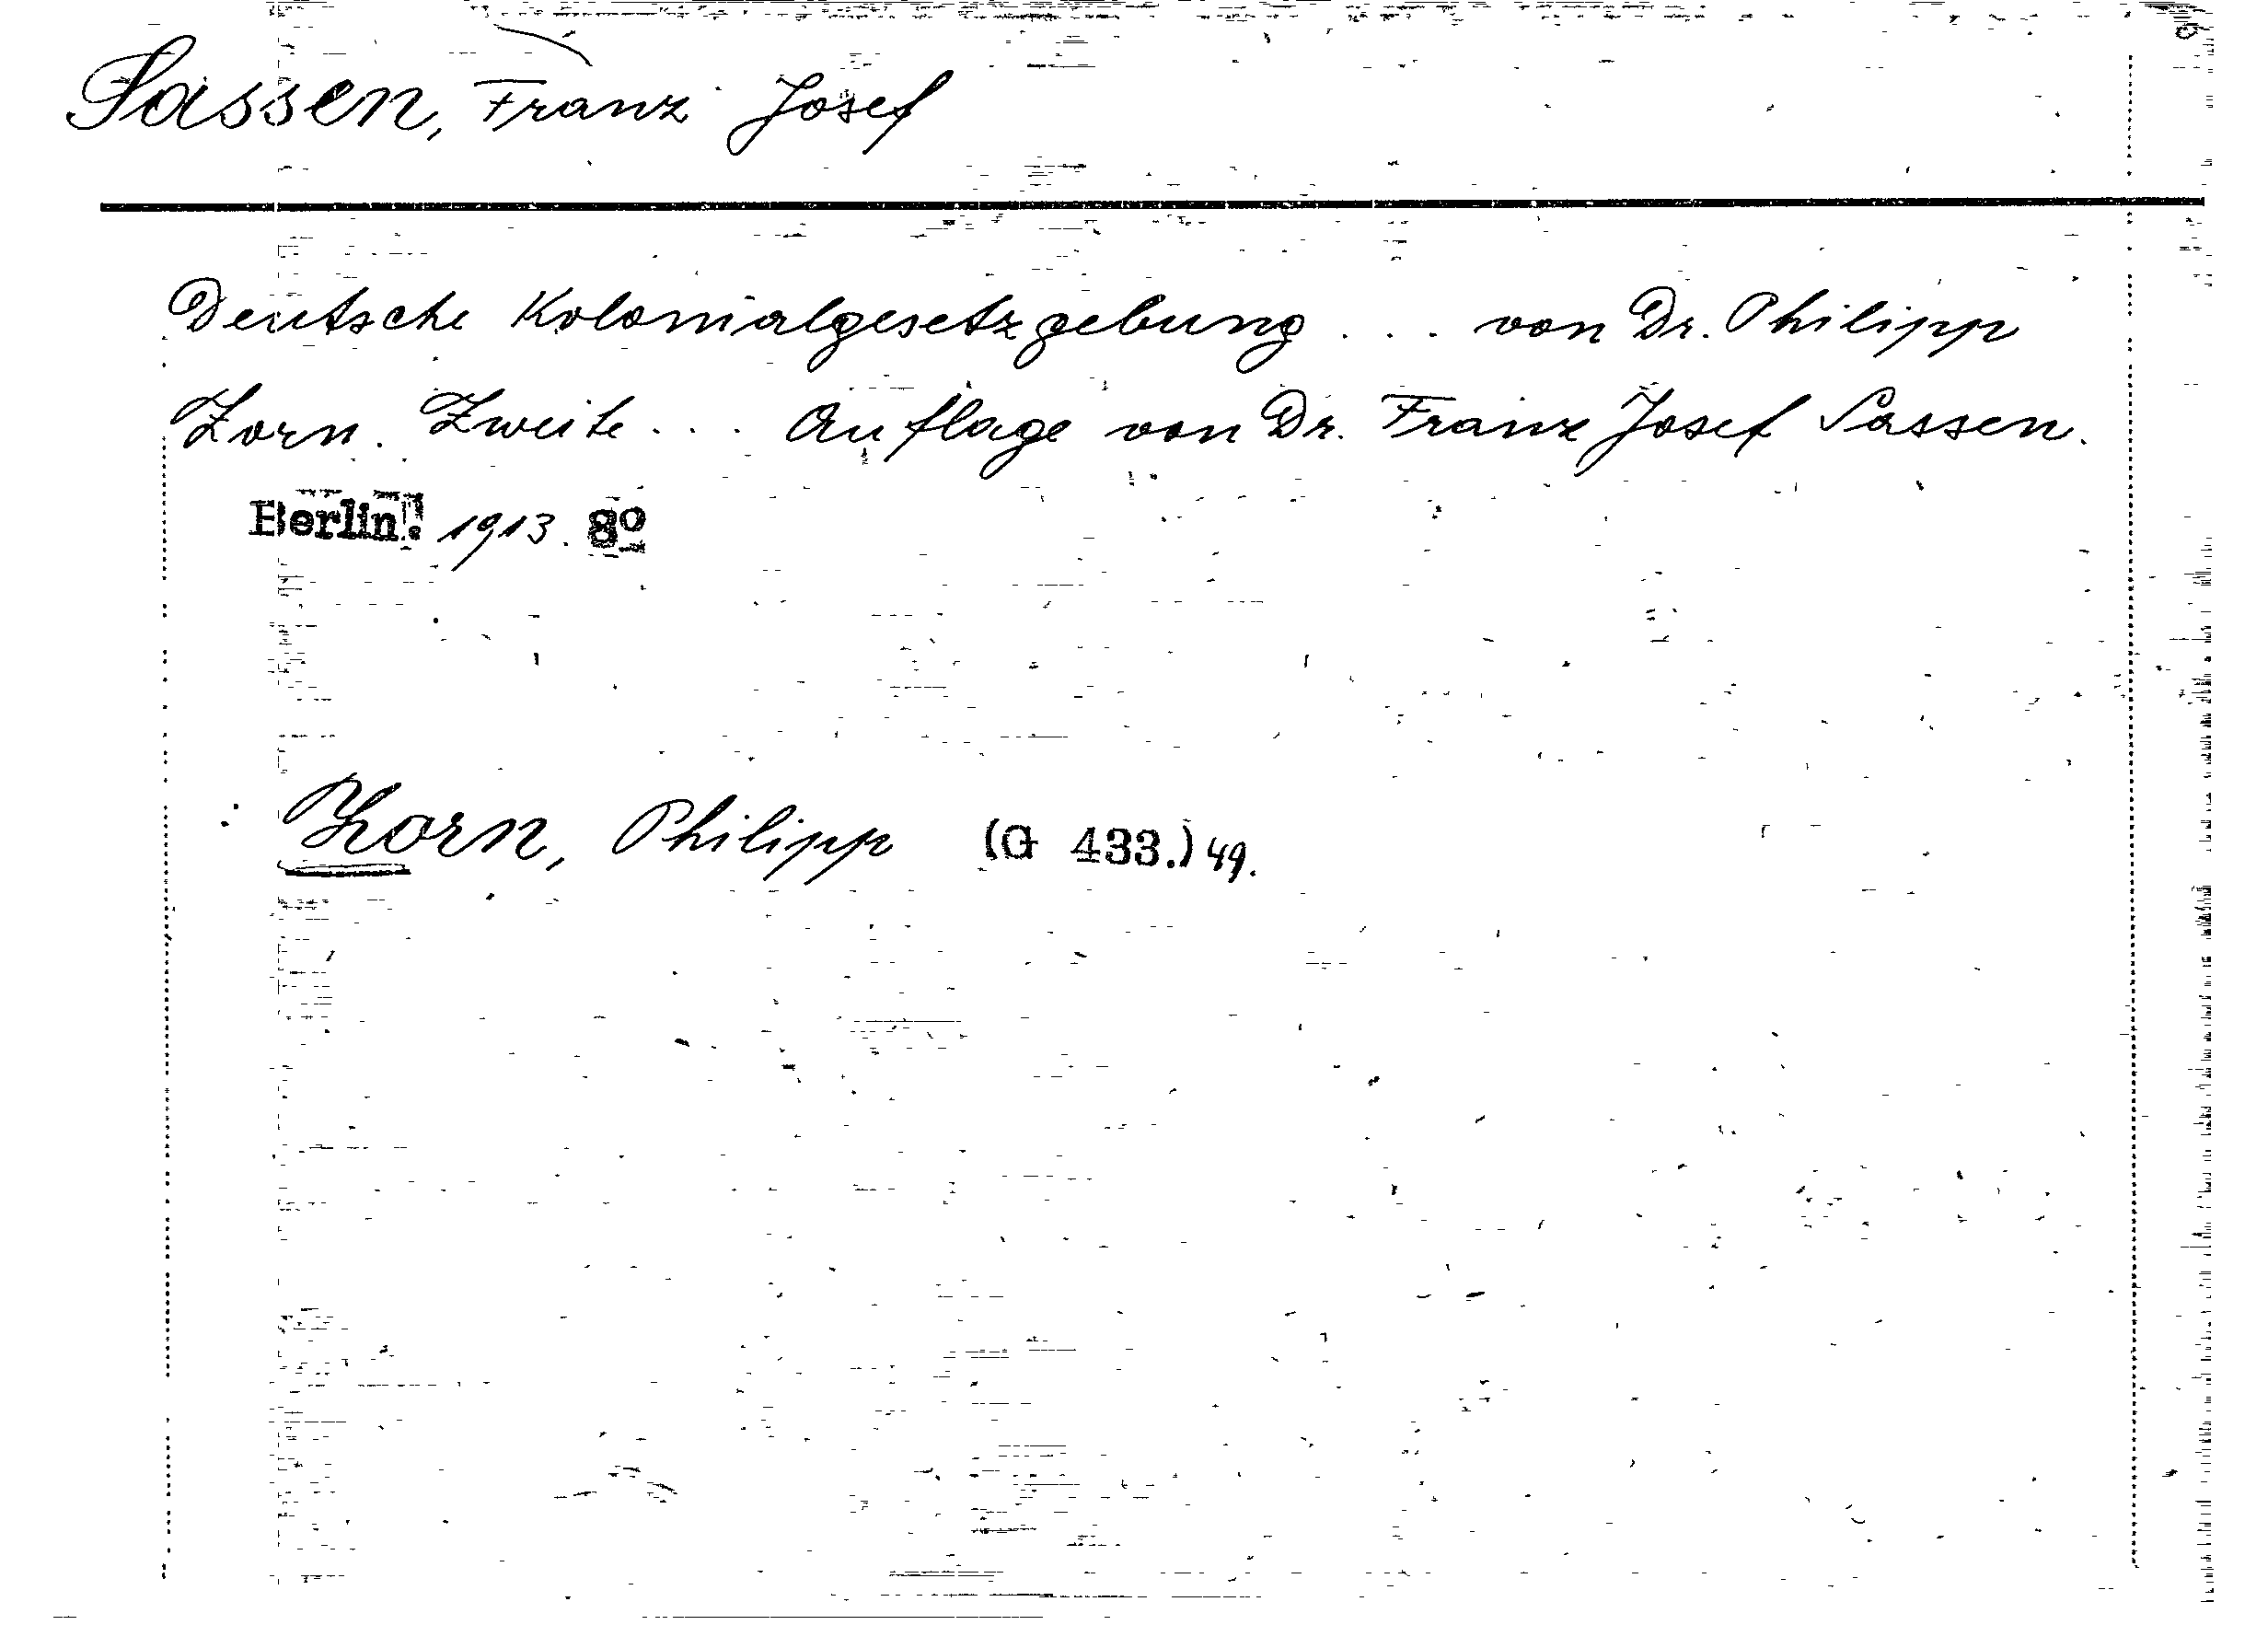 Sassen, Franz Josef
Deutsche Kolonialgesetzgebung ... von Dr. Philipp
Zorn. Zweite ... Auflage von Dr. Franz Josef Sassen.
Berlin. 1913. 8º
: Zorn, Philipp (G 433.) 49.